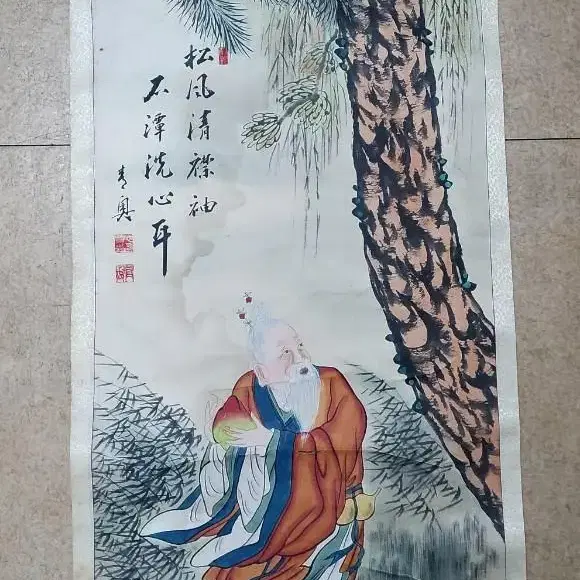 松风清襟袖
石潭洗心耳
青奥